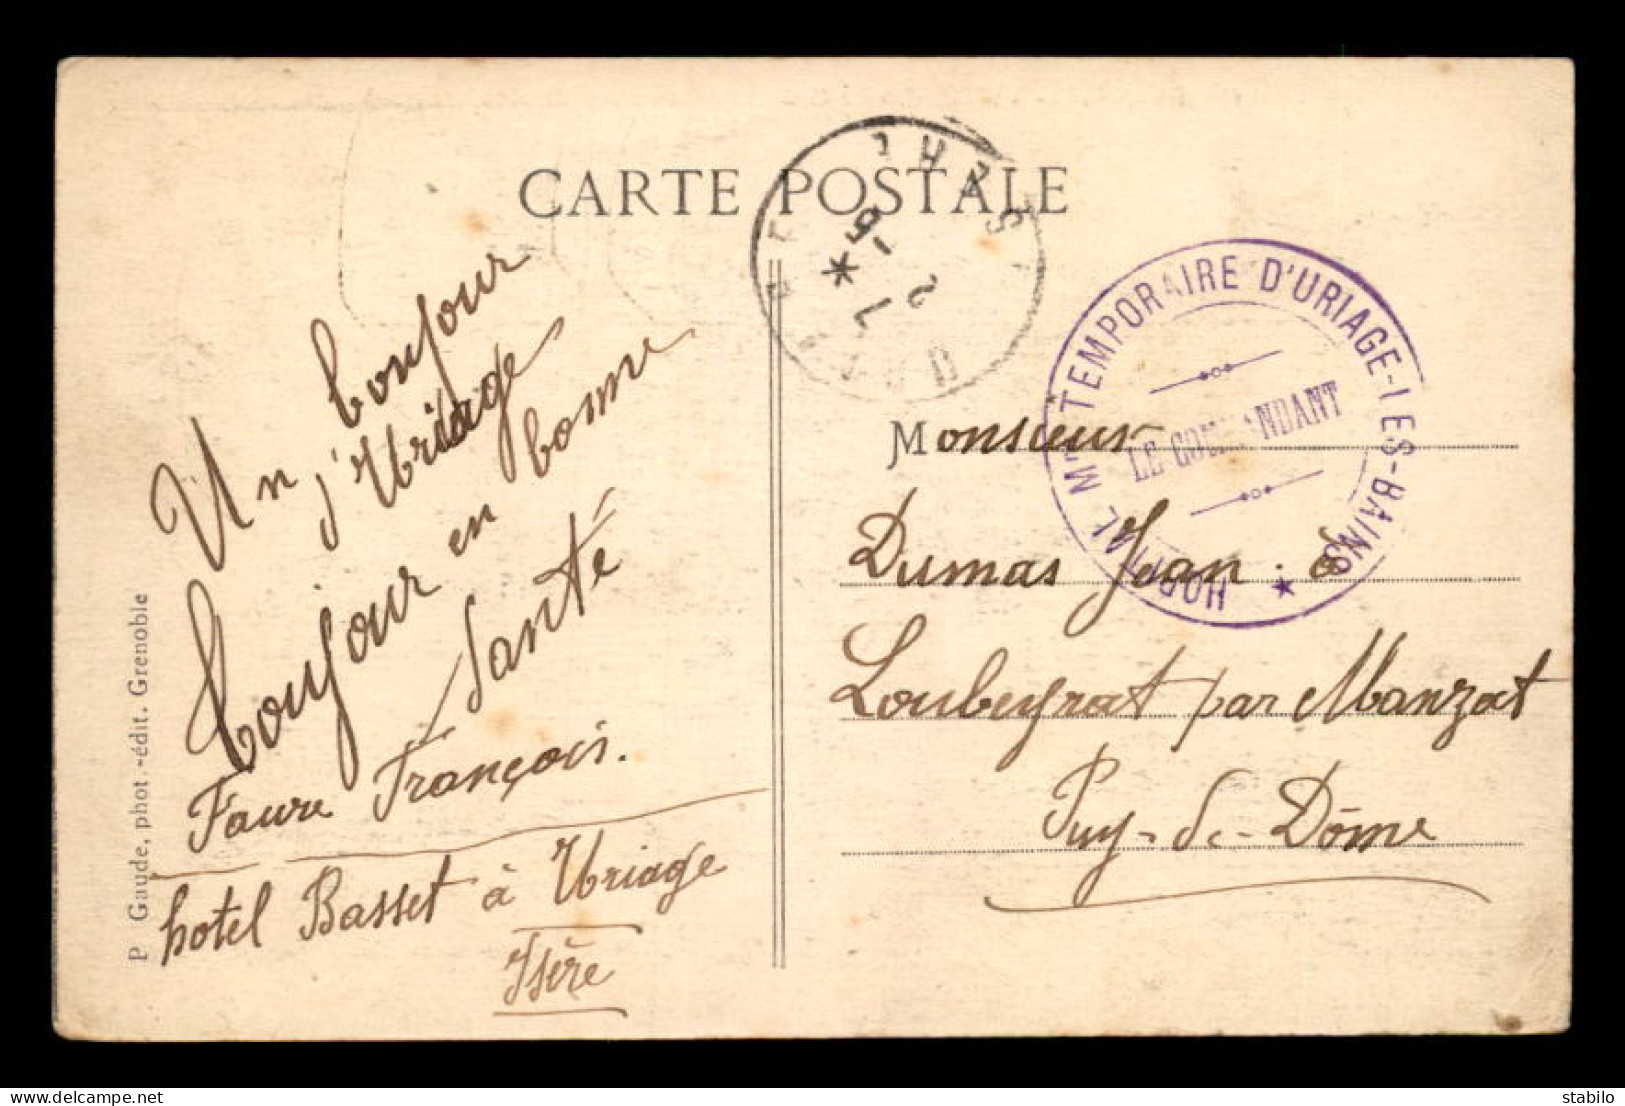 CARTE POSTALE
Un bonjour
d'Uriage
toujour en bonne
Santé
Faure François.
hotel Basset à Uriage
Isère
P Gaude, phot.-édit. Grenoble
HOPITAL Mre TEMPORAIRE D'URIAGE-LES-BAINS
LE COMMANDANT
Monsieur
Dumas Jean. à
Loubeyrat par Manzat
Puy-de-Dôme
delcampe.net
stabilo